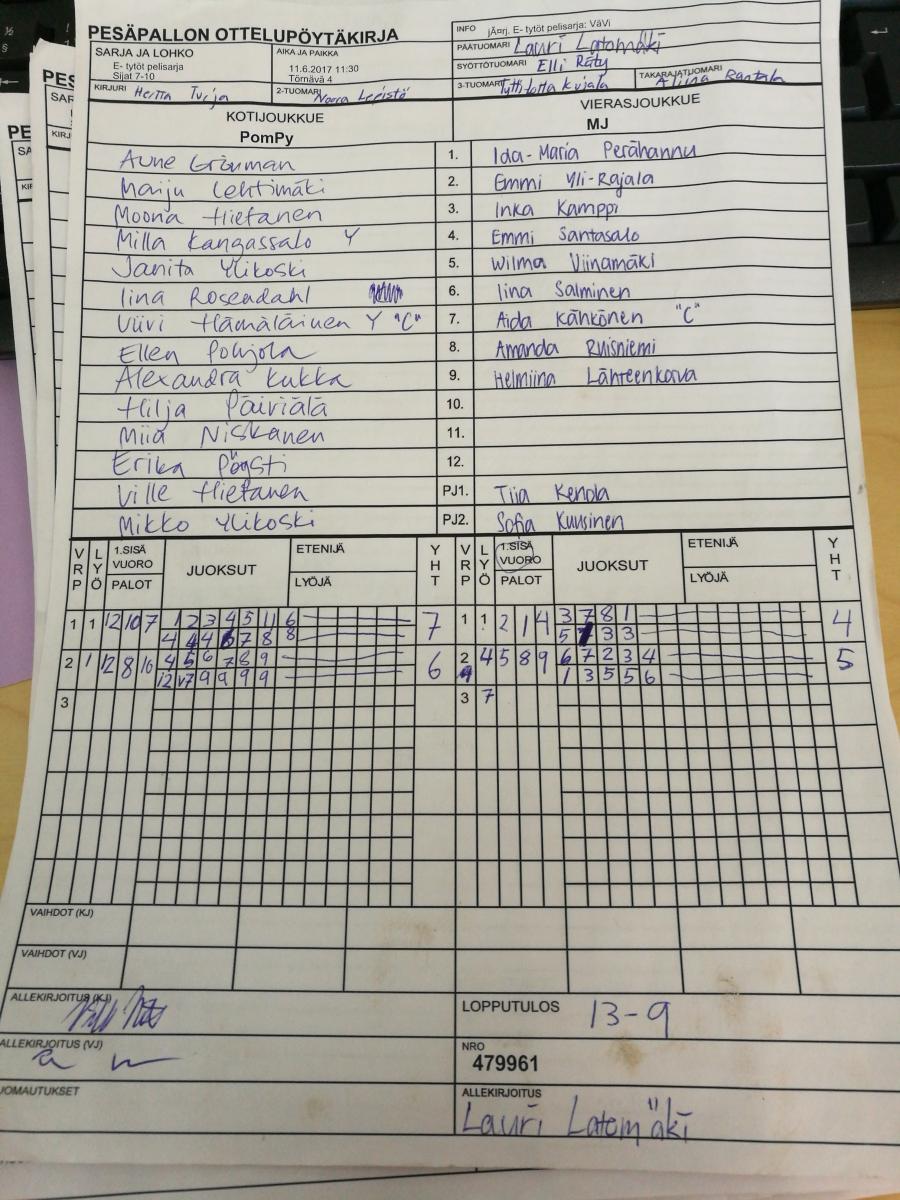 PESÄPALLON OTTELUPÖYTÄKIRJA
INFO jÄ¤rj. E- tytöt pelisarja: VäVi
PÄÄTUOMARI Lauri Latomäki
SARJA JA LOHKO
E- tytöt pelisarja
Sijat 7-10
AIKA JA PAIKKA
11.6.2017 11:30
Törnävä 4
SYÖTTÖTUOMARI Elli Räty
KIRJURI Hertta Turja
2-TUOMARI Noora Lepistö
3-TUOMARI Kujala
TAKARAJATUOMARI Rantala
KOTIJOUKKUE
PomPy
VIERASJOUKKUE
MJ
Aune Grönman 1. Ida-Maria Perähannu
Maiju Lehtimäki 2. Emmi Yli-Rajala
Moona Hietanen 3. Inka Kamppi
Milla Kangassalo Y 4. Emmi Santasalo
Janita Ylikoski 5. Wilma Viinamäki
Iina Rosendahl 6. Iina Salminen
Viivi Hämäläinen Y "C" 7. Aida Kähkönen "C"
Ellen Pohjola 8. Amanda Ruisniemi
Alexandra Kukka 9. Helmiina Lähteenkorva
Hilja Päiviälä 10.
Miia Niskanen 11.
Erika 12.
Ville Hietanen PJ1. Tiia Kenola
Mikko Ylikoski PJ2. Sofia Kuusinen
VRP LYÖ 1.SISÄ VUORO PALOT JUOKSUT ETENIJÄ LYÖJÄ YHT VRP LYÖ 1.SISÄ VUORO PALOT JUOKSUT ETENIJÄ LYÖJÄ YHT
1 1 12 10 7 1 2 3 4 5 11 6 7 1 1 2 1 4 3 7 8 1 4
4 4 4 6 7 8 8 5 7 3 3
2 1 12 8 10 4 5 6 7 8 9 6 2 4 5 8 9 6 7 2 3 4 5
12 9 9 9 9 1 3 5 5 6
3 3 7
VAIHDOT (KJ)
VAIHDOT (VJ)
ALLEKIRJOITUS (KJ)
LOPPUTULOS 13-9
ALLEKIRJOITUS (VJ)
NRO
479961
HUOMAUTUKSET
ALLEKIRJOITUS
Lauri Latomäki